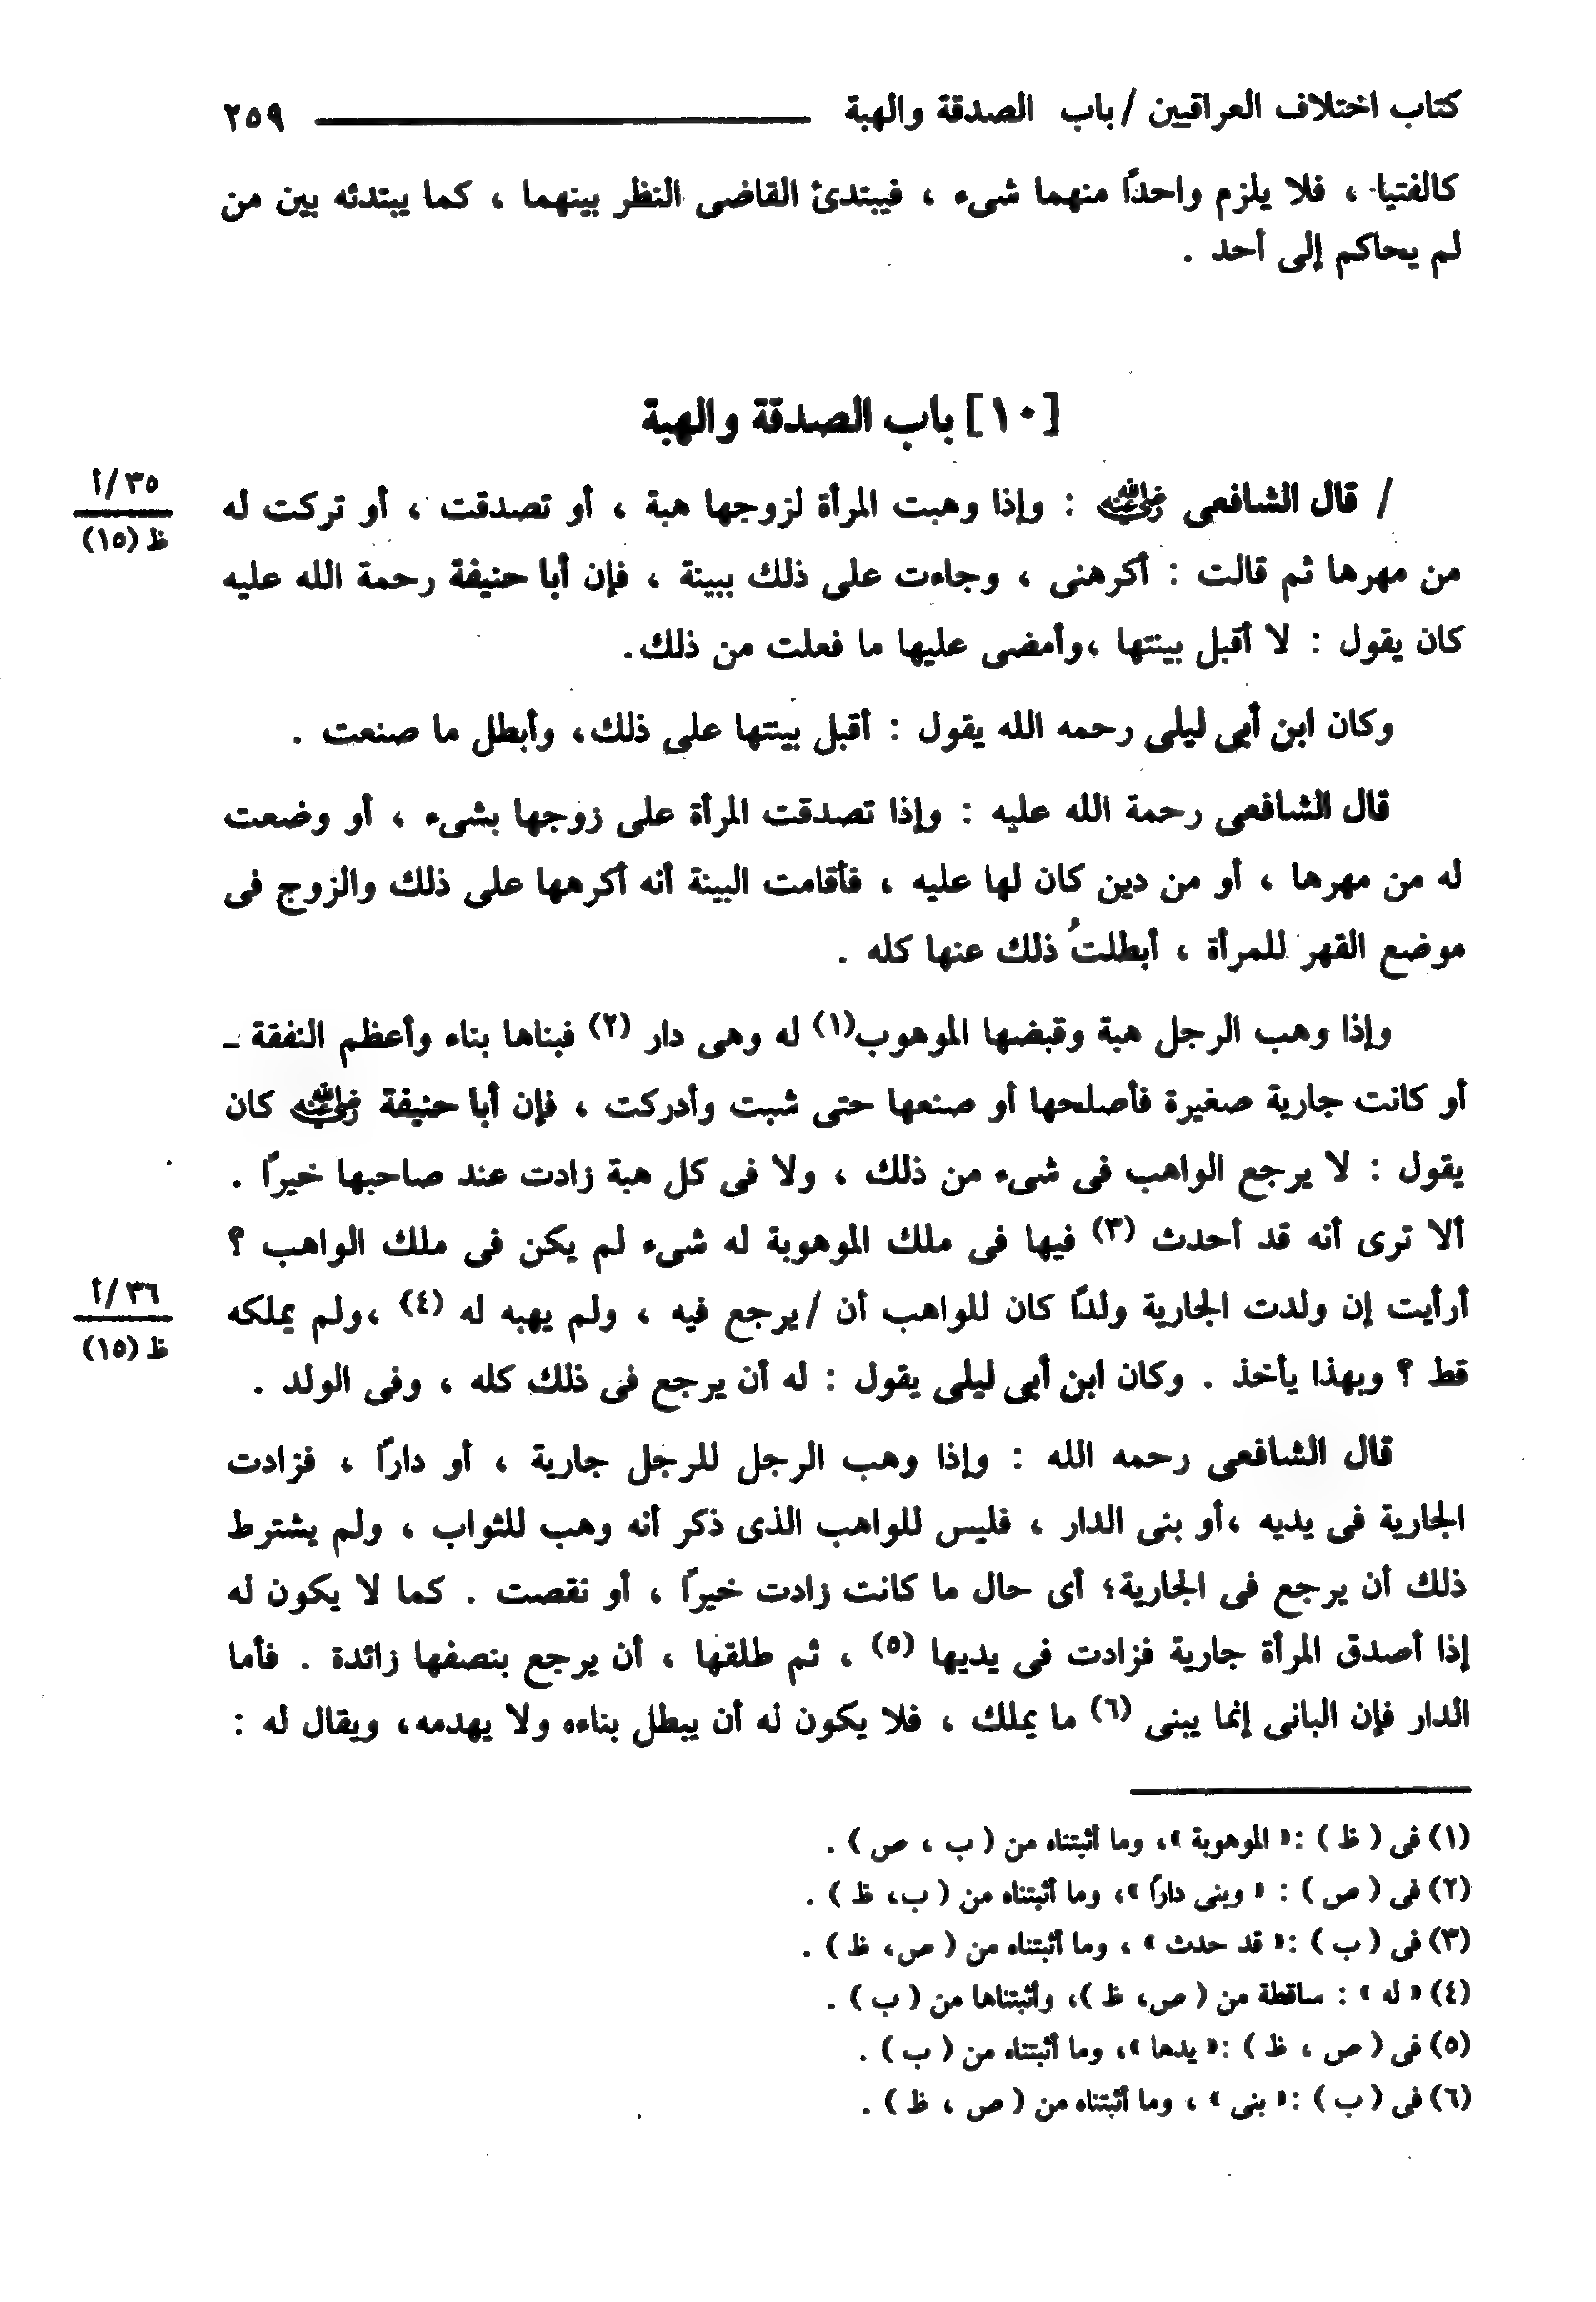 كتاب اختلاف العراقيين / باب الصدقة والهبة ٢٥٩
كالفتيا ، فلا يلزم واحدًا منهما شىء ، فيبتدئ القاضى النظر بينهما ، كما يبتدئه بين من
لم يحاكم إلى أحد .
[١٠] باب الصدقة والهبة
/ قال الشافعى رضي الله عنه : وإذا وهبت المرأة لزوجها هبة ، أو تصدقت ، أو تركت له
٣٥/أ
ظ (١٥)
من مهرها ثم قالت : أكرهنى ، وجاءت على ذلك ببينة ، فإن أبا حنيفة رحمة الله عليه
كان يقول : لا أقبل بينتها ،وأمضى عليها ما فعلت من ذلك.
وكان ابن أبى ليلى رحمه الله يقول : أقبل بينتها على ذلك، وأبطل ما صنعت .
قال الشافعى رحمة الله عليه : وإذا تصدقت المرأة على زوجها بشىء ، أو وضعت
له من مهرها ، أو من دين كان لها عليه ، فأقامت البينة أنه أكرهها على ذلك والزوج فى
موضع القهر للمرأة ، أبطلتُ ذلك عنها كله .
وإذا وهب الرجل هبة وقبضها الموهوب(١) له وهى دار (٢) فبناها بناء وأعظم النفقة ـ
أو كانت جارية صغيرة فأصلحها أو صنعها حتى شبت وأدركت ، فإن أبا حنيفة رضي الله عنه كان
يقول : لا يرجع الواهب فى شىء من ذلك ، ولا فى كل هبة زادت عند صاحبها خيرًا .
ألا ترى أنه قد أحدث (٣) فيها فى ملك الموهوبة له شىء لم يكن فى ملك الواهب ؟
أرأيت إن ولدت الجارية ولدًا كان للواهب أن / يرجع فيه ، ولم يهبه له (٤) ،ولم يملكه
٣٦/أ
ظ (١٥)
قط ؟ وبهذا يأخذ . وكان ابن أبى ليلى يقول : له أن يرجع فى ذلك كله ، وفى الولد .
قال الشافعى رحمه الله : وإذا وهب الرجل للرجل جارية ، أو دارًا ، فزادت
الجارية فى يديه ،أو بنى الدار ، فليس للواهب الذى ذكر أنه وهب للثواب ، ولم يشترط
ذلك أن يرجع فى الجارية؛ أى حال ما كانت زادت خيرًا ، أو نقصت . كما لا يكون له
إذا أصدق المرأة جارية فزادت فى يديها (٥) ، ثم طلقها ، أن يرجع بنصفها زائدة . فأما
الدار فإن البانى إنما يبنى (٦) ما يملك ، فلا يكون له أن يبطل بناءه ولا يهدمه، ويقال له :
(١) فى ( ظ ) :« الموهوبة »، وما أثبتناه من ( ب ، ص ) .
(٢) فى ( ص ) : « وبنى دارًا »، وما أثبتناه من ( ب، ظ ) .
(٣) فى ( ب ) :« قد حدث » ، وما أثبتناه من ( ص، ظ ) .
(٤) « له » : ساقطة من ( ص، ظ )، وأثبتناها من ( ب ) .
(٥) فى ( ص ، ظ ) :« يدها »، وما أثبتناه من ( ب ) .
(٦) فى ( ب ) :« بنى » ، وما أثبتناه من ( ص ، ظ ) .